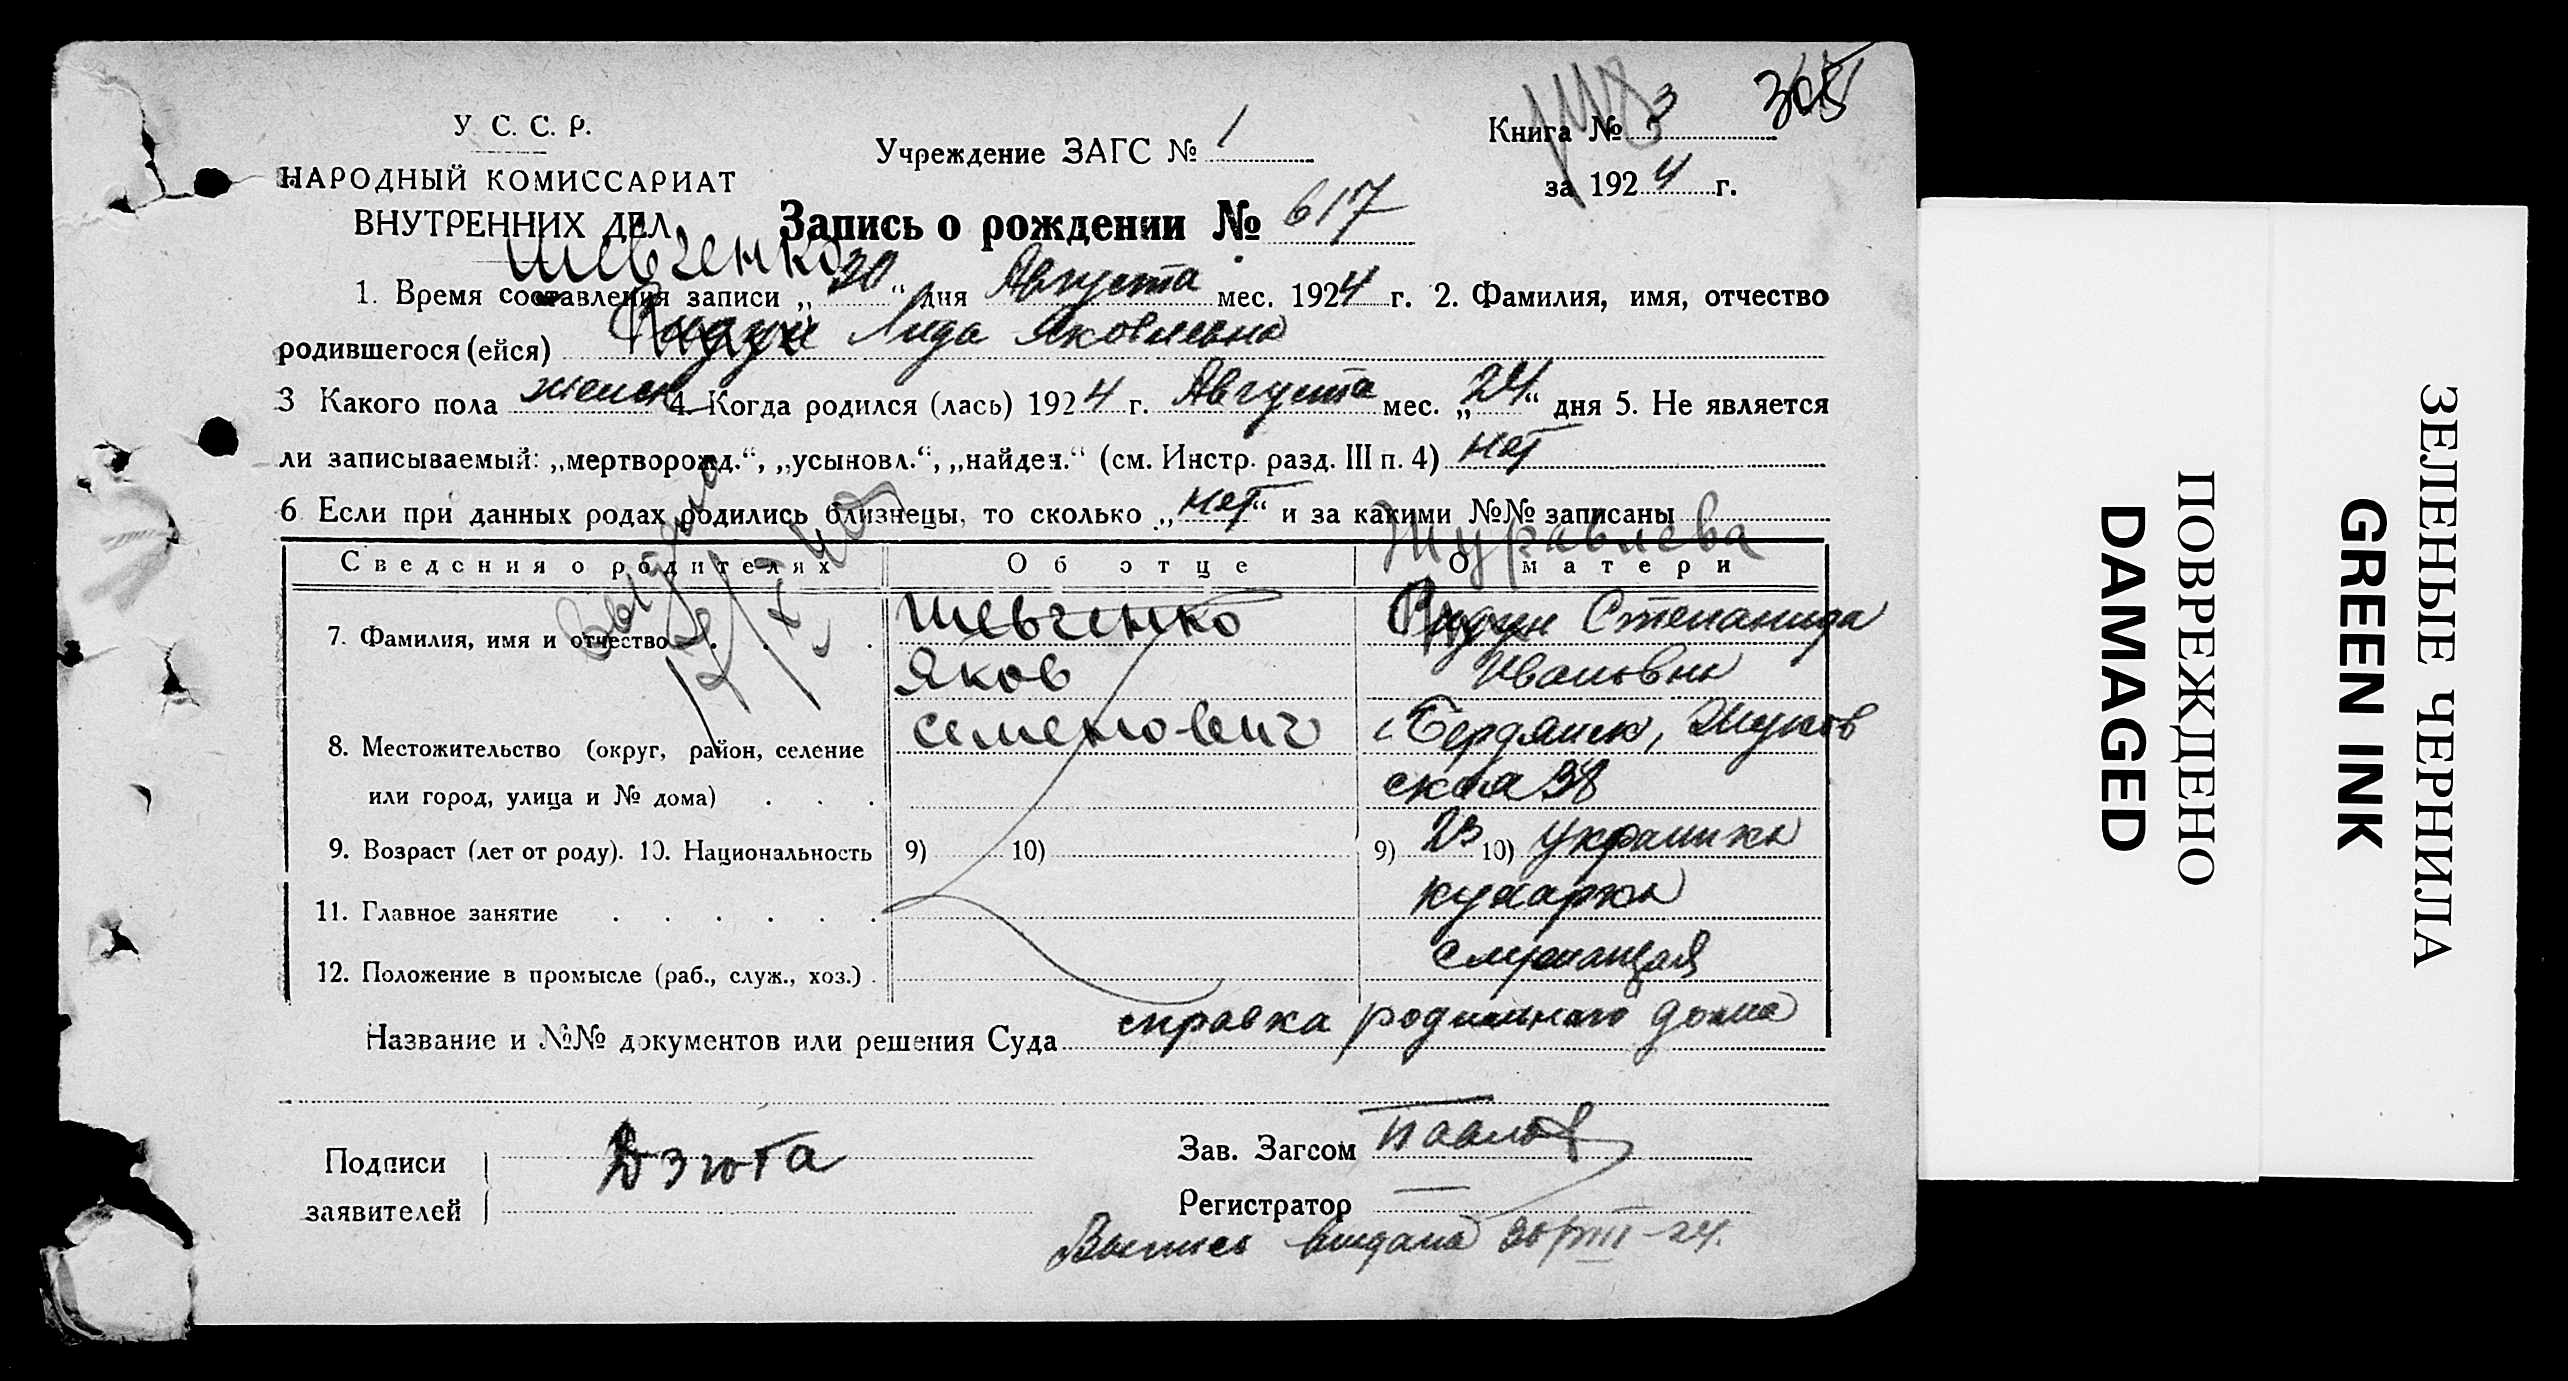 У С. С. Р.
НАРОДНЫЙ КОМИССАРИАТ
ВНУТРЕННИХ ДЕЛ
Учреждение ЗАГС № 1
Книга № 3
за 1924 г.
Запись о рождении № 617
Шевченко
1. Время составления записи „30“ дня Августа мес. 1924 г. 2. Фамилия, имя, отчество
родившегося (ейся) Лида Яковлевна
3 Какого пола женск 4. Когда родился (лась) 1924 г. Августа мес. „24“ дня 5. Не является
ли записываемый: „мертворожд.“, „усыновл.“, „найден.“ (см. Инстр. разд. III п. 4) нет
6 Если при данных родах родились близнецы, то сколько „нет“ и за какими №№ записаны
Журавлева
Сведения о родителях Об отце О матери
7. Фамилия, имя и отчество . . . Шевченко Степанида
Яков Ивановна
8. Местожительство (округ, район, селение Семенович г. Бердянск,
или город, улица и № дома) . . . ская 38
9. Возраст (лет от роду). 10. Национальность 9) 10) 9) 23 10) украинка
11. Главное занятие . . . . . . кухарка
12. Положение в промысле (раб., служ., хоз.) . служащая
Название и №№ документов или решения Суда справка родильного дома
Подписи
заявителей Дзюта
Зав. Загсом Павлов
Регистратор
Выпись выдана 30/VIII-24.
ПОВРЕЖДЕНО
DAMAGED
ЗЕЛЕНЫЕ ЧЕРНИЛА
GREEN INK